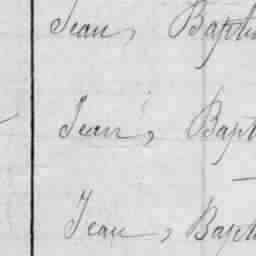 Jean, Baptis
Jean, Bapt
Jean, Bapt